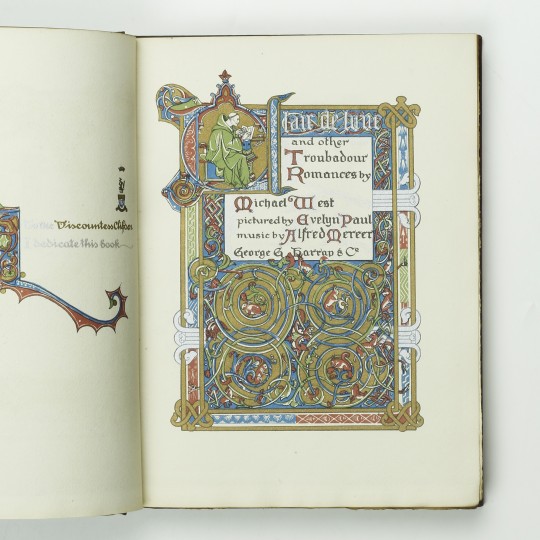 the Viscountess
dedicate this book
Clair de lune
and other
Troubadour
Romances by
Michael West
pictured by Evelyn Paul
music by Alfred Mercer
George G. Harrap & Co